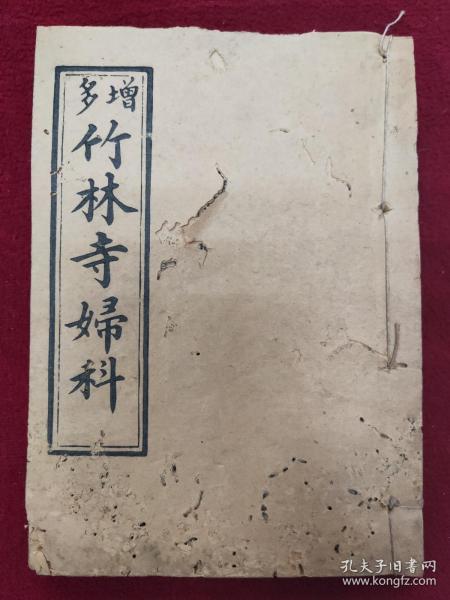 增多
竹林寺婦科
孔夫子旧书网
www.kongfz.com